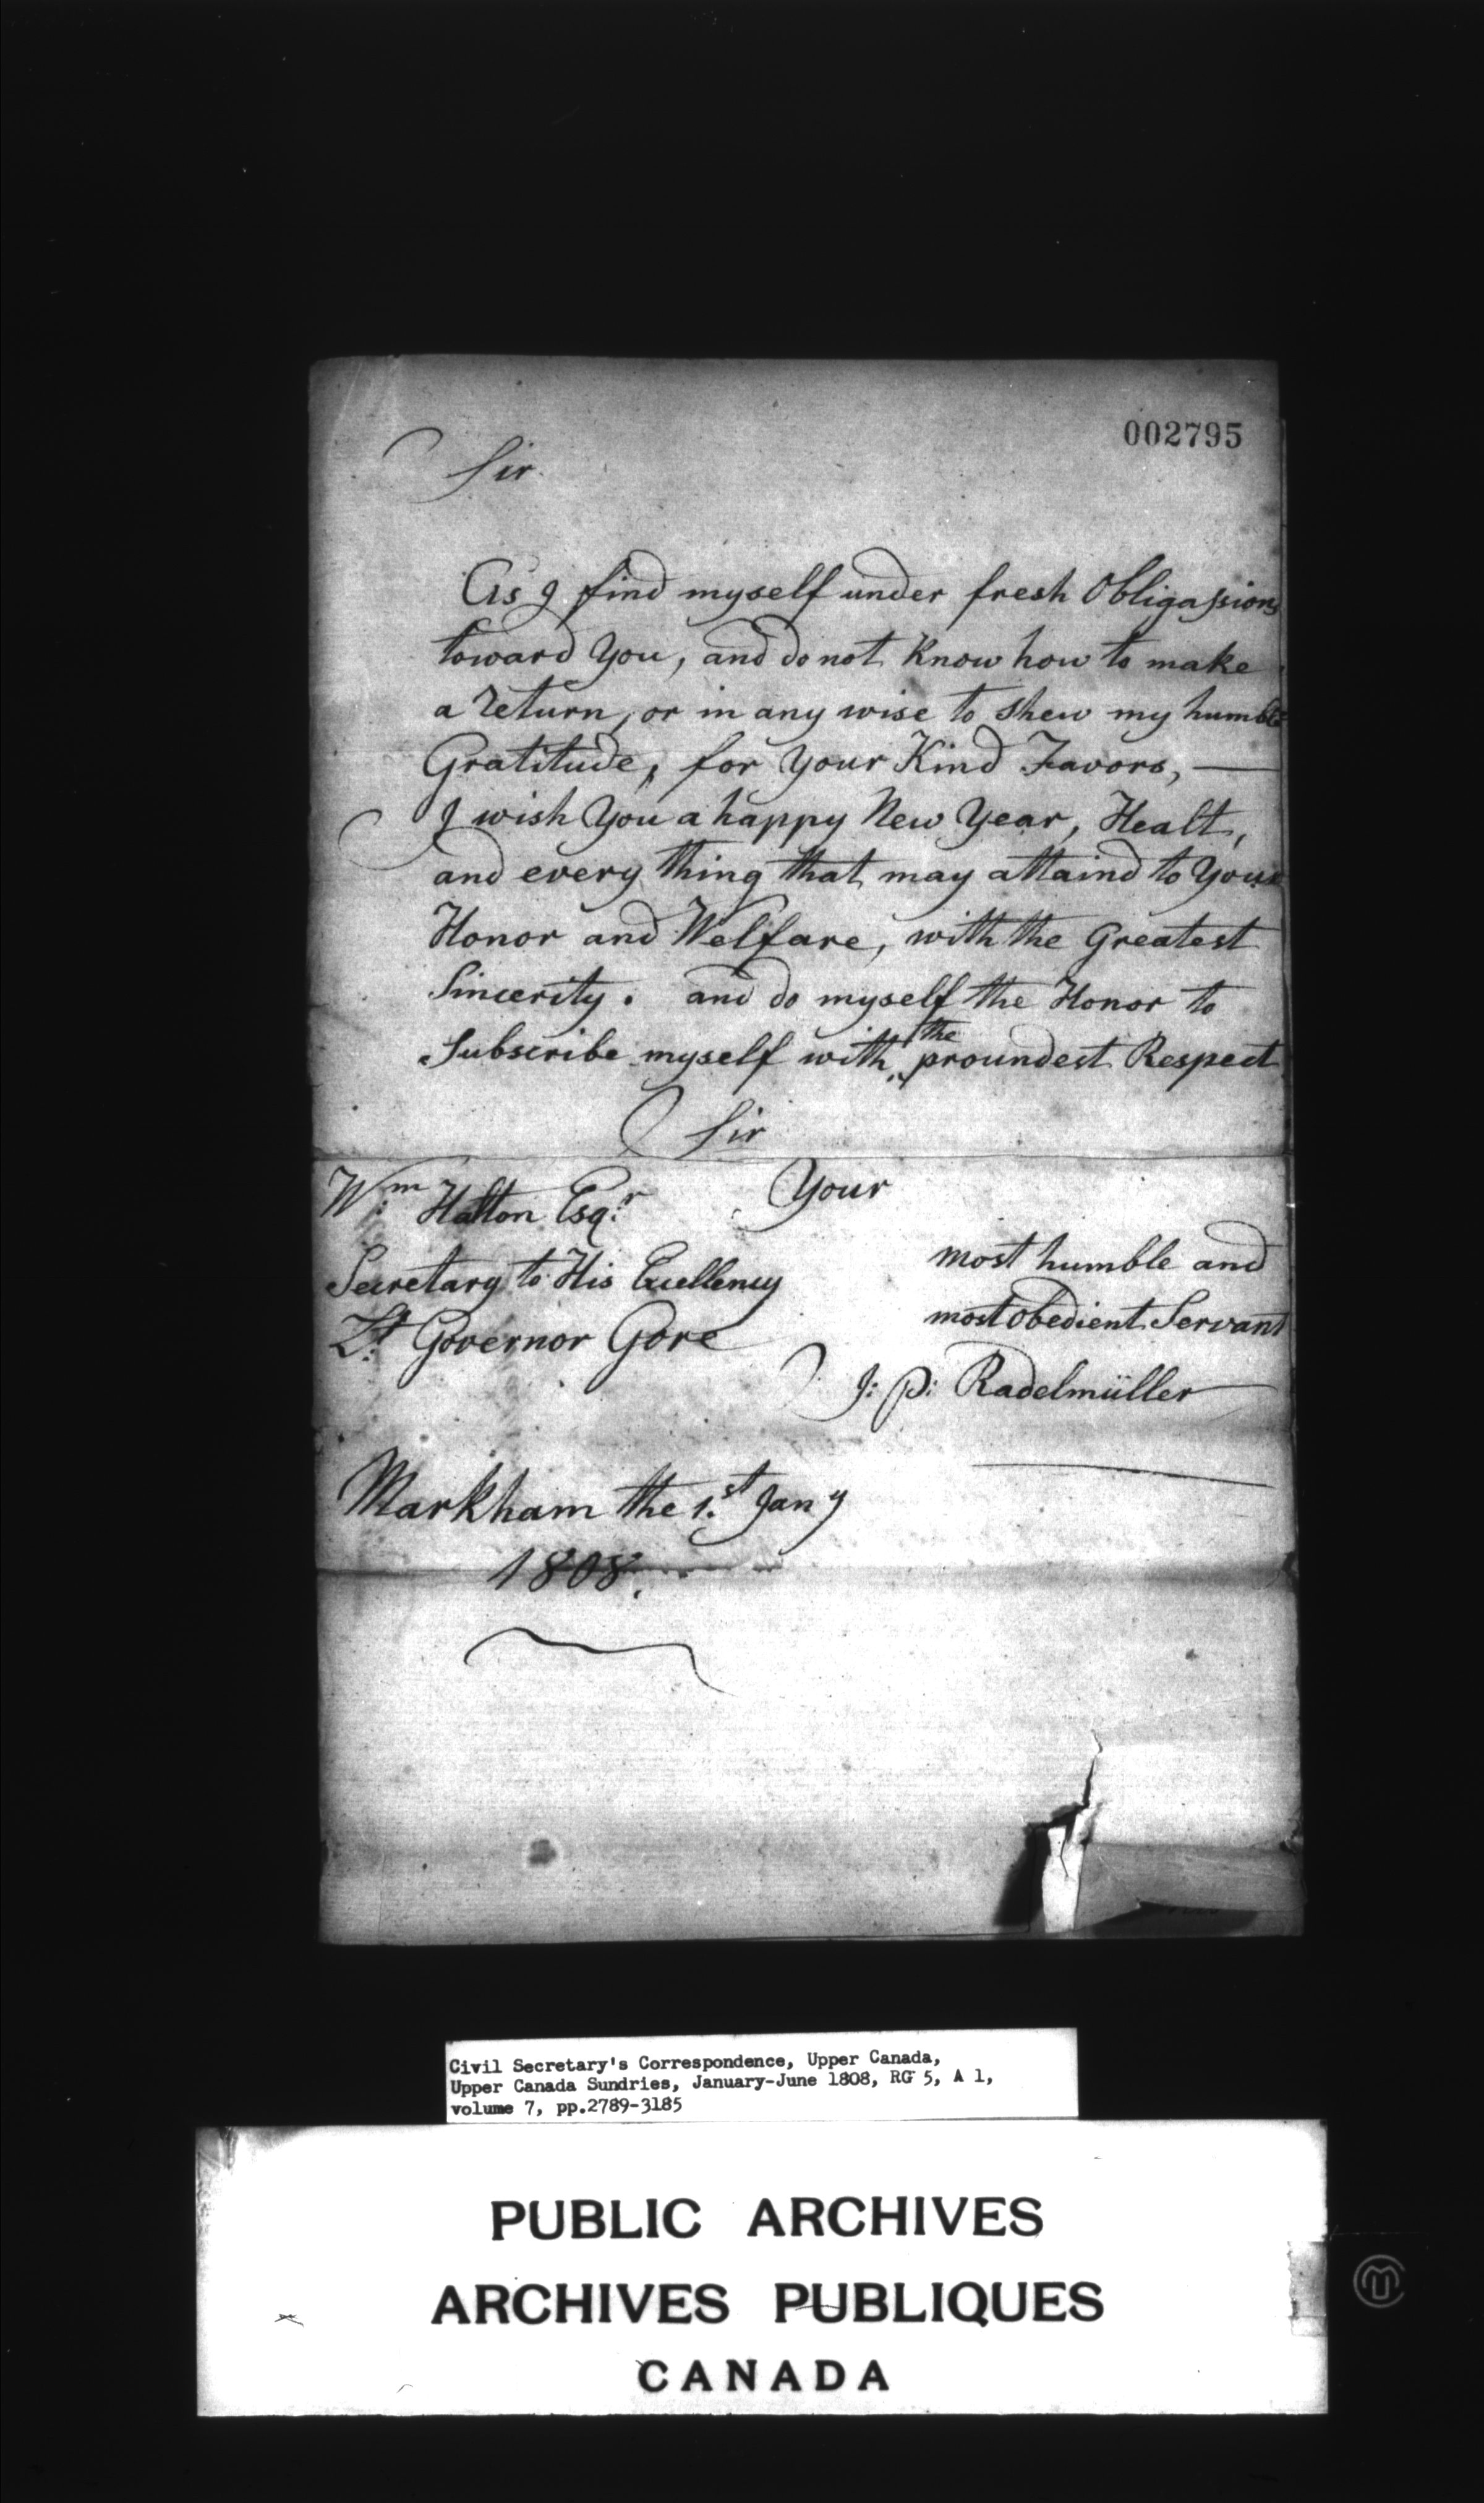 002795
Sir
As I find myself under fresh Obligassions
toward You, and do not Know how to make
a return, or in any wise to shew my humble
Gratitude, for Your Kind Favors, —
I wish You a happy New Year, Healt,
and every thing that may attaind to Your
Honor and Welfare, with the Greatest
Sincerity. and do myself the Honor to
Subscribe myself with the proundest Respect
Sir
Your
most humble and
most obedient Servant
J: P: Radelmüller
Wm Halton Esqr
Secretary to His Excellency
Lt Governor Gore
Markham the 1.st Jany
1808.
Civil Secretary's Correspondence, Upper Canada,
Upper Canada Sundries, January-June 1808, RG 5, A 1,
volume 7, pp.2789-3185
PUBLIC ARCHIVES
ARCHIVES PUBLIQUES
CANADA